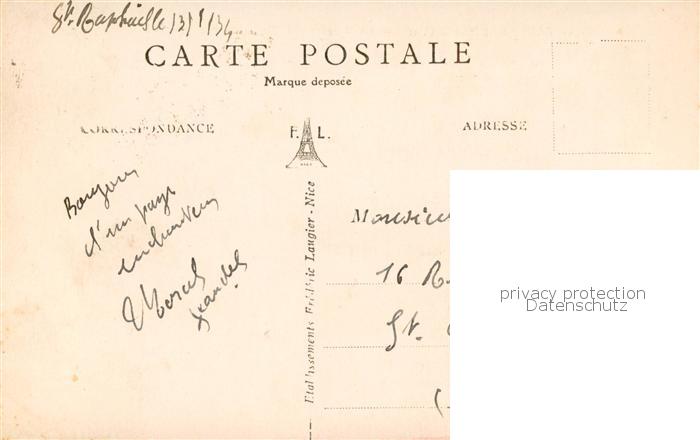 St. Raphaël le 13/1/34
CARTE POSTALE
Marque déposée
CORRESPONDANCE
F. L.
ADRESSE
Bonjour
d'un pays
enchanteur
Marcel
Etablissements Frédéric Laugier - Nice
Monsieu
16 R
St.
privacy protection
Datenschutz